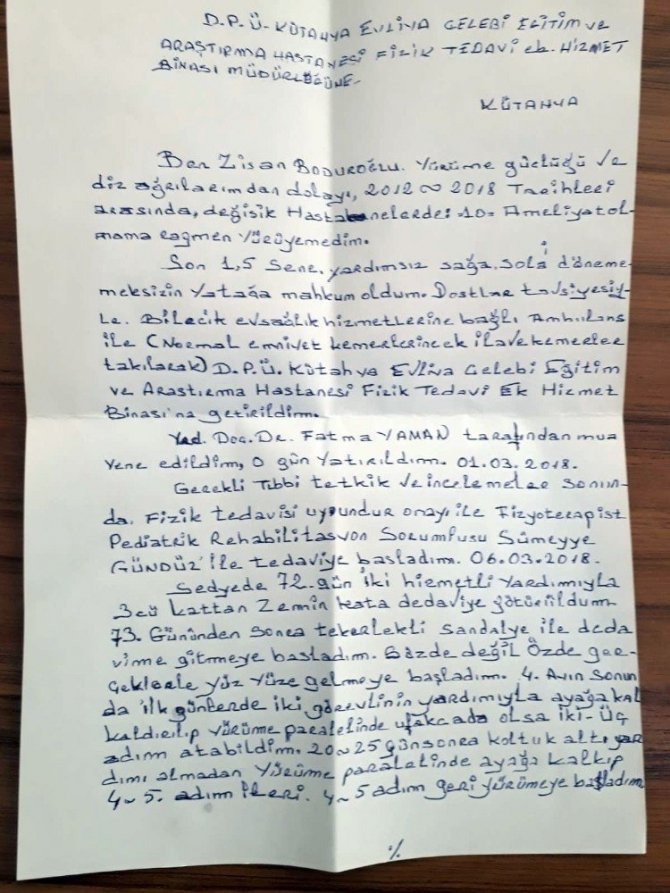 D.P.Ü. KÜTAHYA EVLİYA ÇELEBİ EĞİTİM VE
ARAŞTIRMA HASTANESİ FİZİK TEDAVİ ek. HİZMET
BİNASI MÜDÜRLÜĞÜNE-
KÜTAHYA
Ben Zişan BODUROĞLU. Yürüme güçlüğü ve
diz ağrılarımdan dolayı, 2012~2018 Tarihleri
arasında, değişik Hastahanelerde: 10= Ameliyat ol-
mama rağmen Yürüyemedim.
Son 1,5 Sene. yardımsız sağa, sola döneme-
meksizin Yatağa mahkum oldum. Dostlar tavsiyesiy-
le. Bilecik evsağlık hizmetlerine bağlı Ambulans
ile (Normal emniyet kemerlerincek ilave kemerler
takılarak) D.P.Ü. Kütahya Evliya Çelebi Eğitim
ve Araştırma Hastanesi Fizik Tedavi Ek Hizmet
Binası'na getirildim.
Yrd. Doç. Dr. Fatma YAMAN tarafından mua
yene edildim, O gün Yatırıldım. 01.03.2018.
Gerekli Tıbbi tetkik ve incelemeler sonun-
da. Fizik tedavisi uygundur onayı ile Fizyoterapist
Pediatrik Rehabilitasyon Sorumlusu Sümeyye
GÜNDÜZ'ile tedaviye başladım. 06.03.2018.
Sedyede 72. gün iki hizmetli yardımıyla
3cü kattan Zemin kata dedaviye götürüldüm
73. Gününden sonra tekerlekli sandalye ile deda
vime gitmeye başladım. Sözde değil Özde ger-
çeklerle yüz yüze gelmeye başladım. 4. Ayın sonun
da ilk günlerde iki görevlinin yardımıyla ayağa kal
kaldırılıp yürüme paralelinde ufakcada olsa iki-üç
adım atabildim. 20~25 gün sonra koltuk altı yar
dımı almadan Yürüme paralelinde ayağa kalkıp
4~5. adım ileri. 4~5 adım geri yürümeye başladım
%